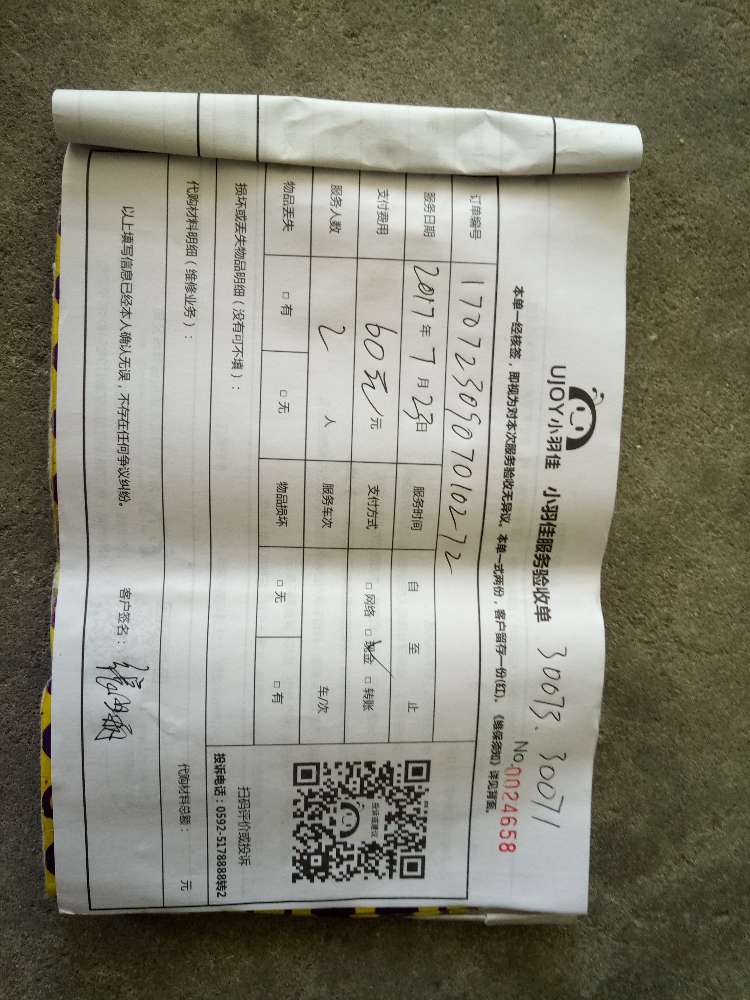 UJOY小羽佳 小羽佳服务验收单 30073. 30071
No.0024658
本单一经核签，即视为对本次服务验收无异议。本单一式两份，客户留存一份(红)。《维保须知》详见背面。
订单编号 17072309070102-72
服务日期 2017年7月23日 服务时间 自 至 止
支付费用 60元/元 支付方式 □网络 □现金 □转账
服务人数 2 人 服务车次 车/次
物品丢失 □有 □无 物品损坏 □无 □有
投诉或建议
扫码评价或投诉
投诉电话：0592-5178888转2
损坏或丢失物品明细（没有可不填）：
代购材料明细（维修业务）： 代购材料总额： 元
以上填写信息已经本人确认无误，不存在任何争议纠纷。 客户签名：